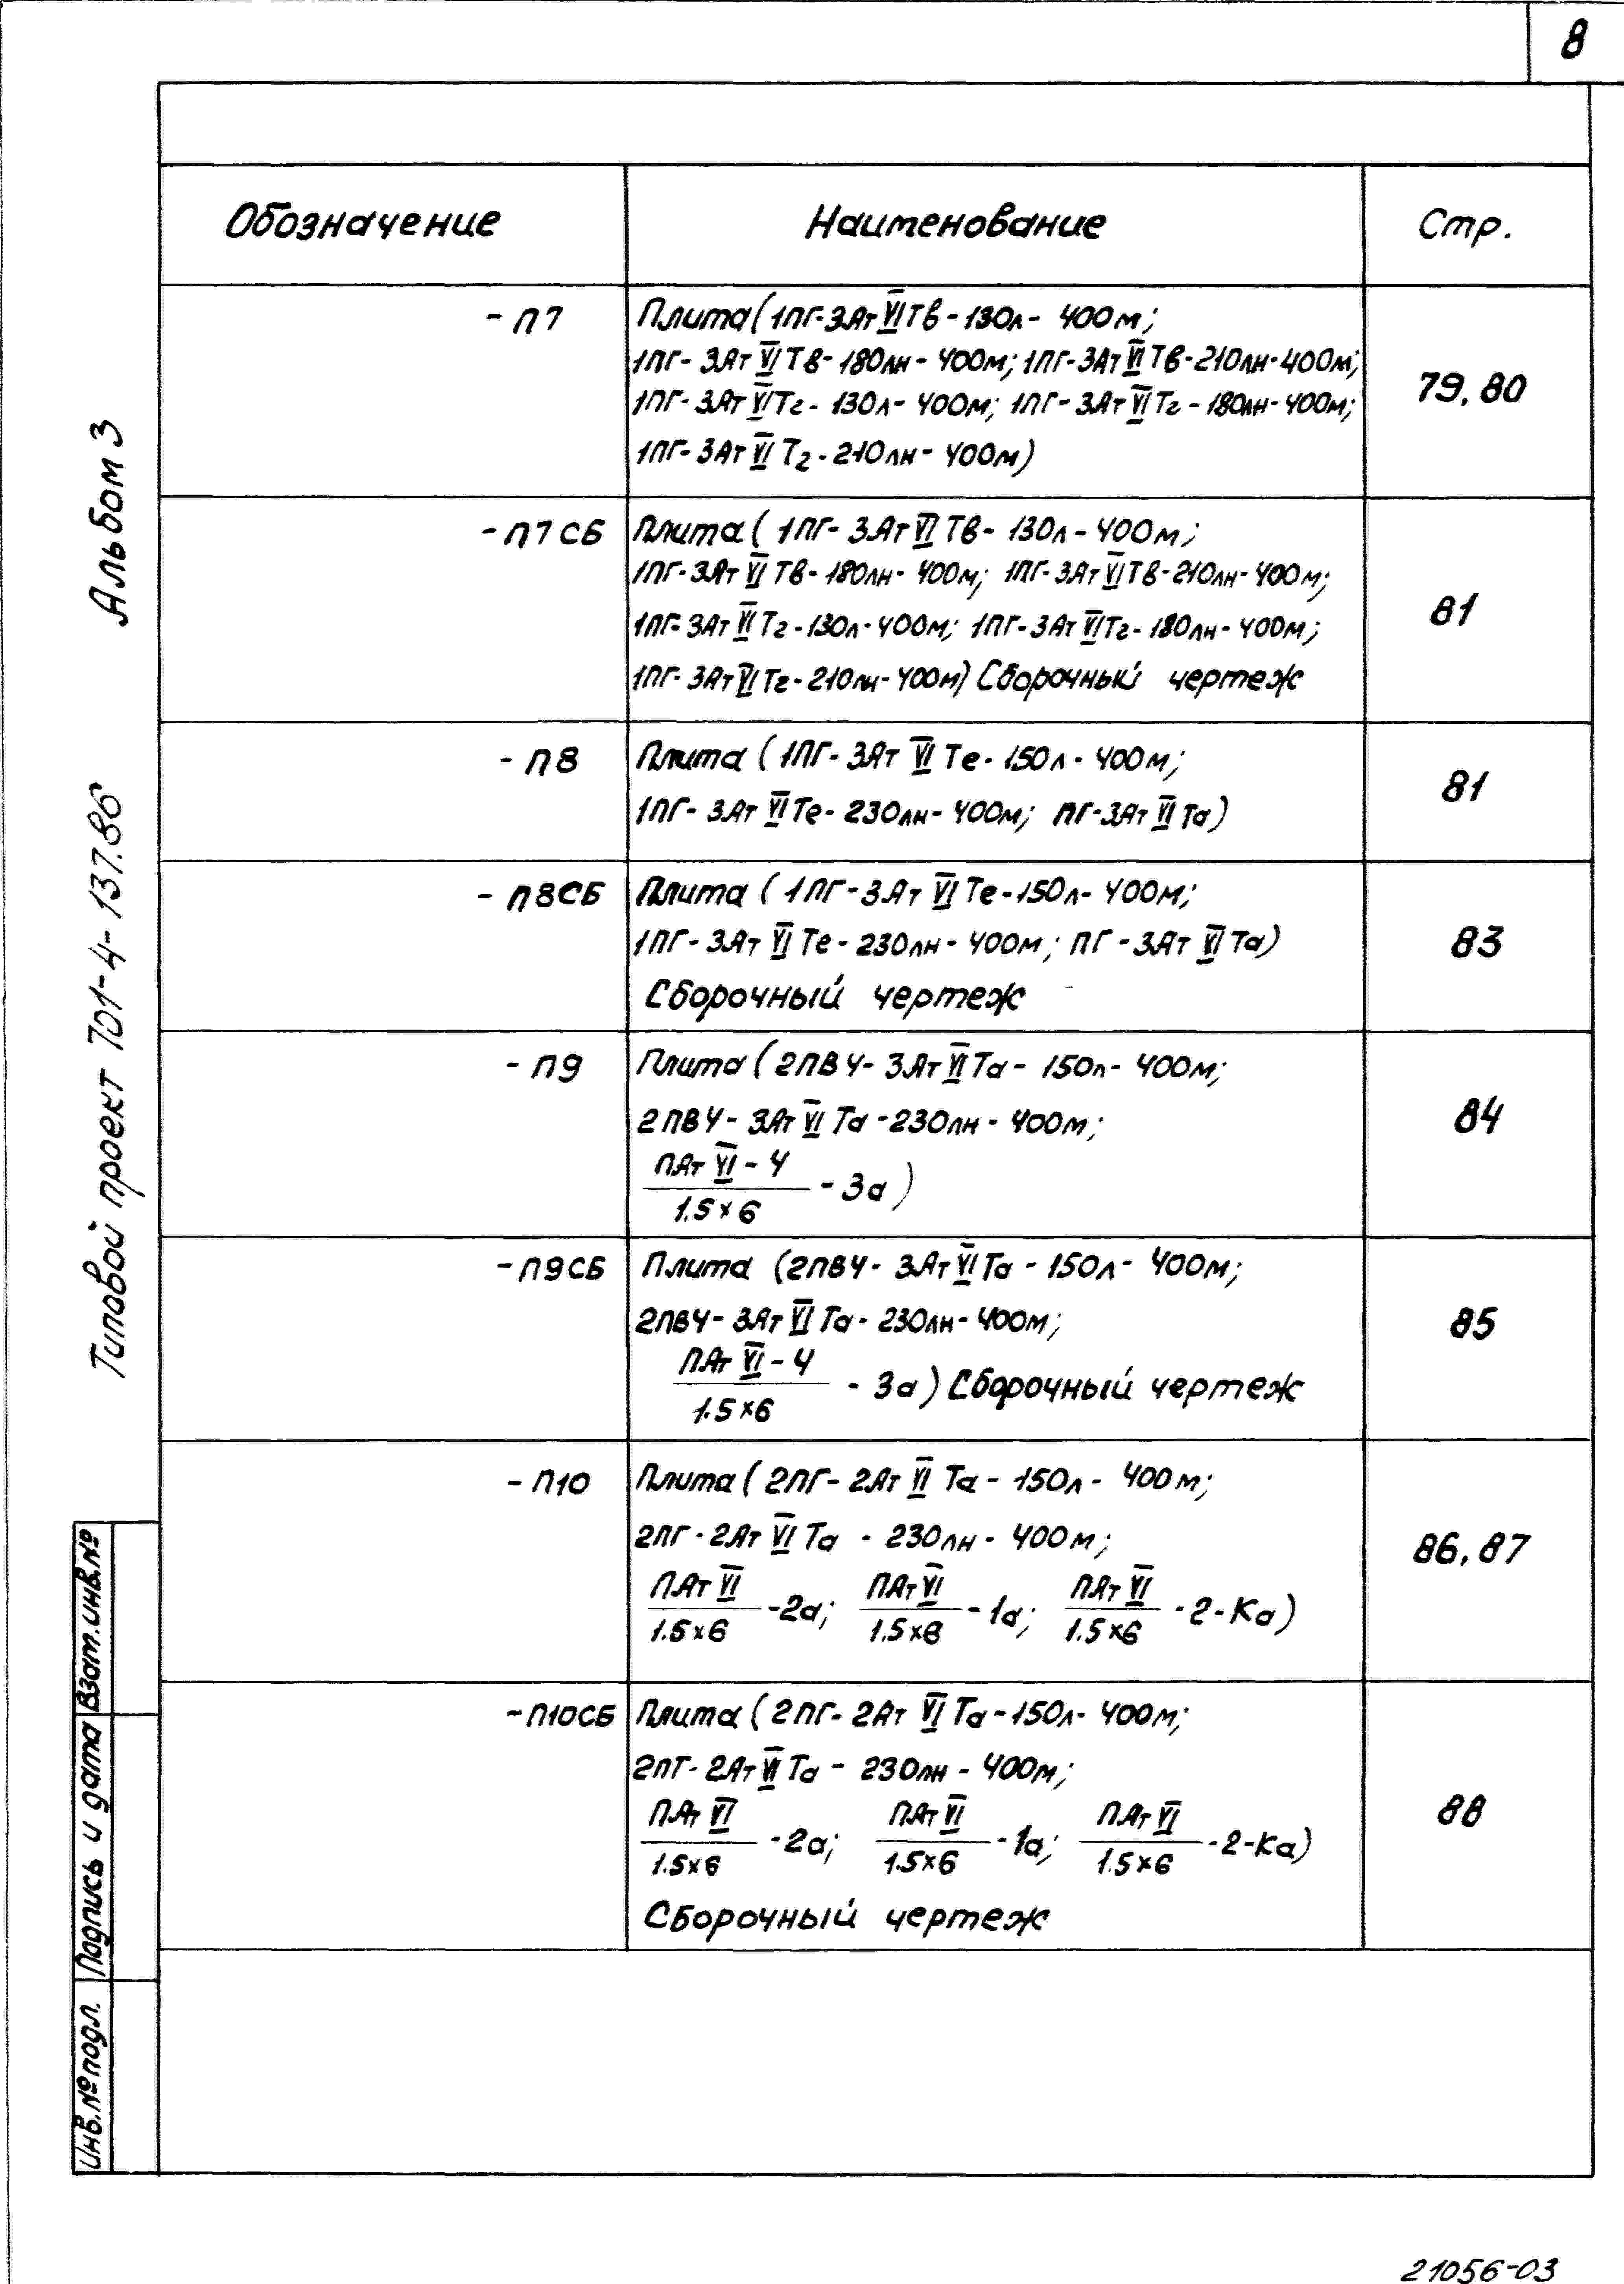 8
Обозначение Наименование Стр.
-П7 Плита (1ПГ-3АтVIТв-130л-400м;
1ПГ-3АтVIТв-180лн-400м; 1ПГ-3АтVIТв-210лн-400м;
1ПГ-3АтVIТг-130л-400м; 1ПГ-3АтVIТг-180лн-400м;
1ПГ-3АтVIТг-210лн-400м)
79,80
-П7СБ Плита (1ПГ-3АтVIТв-130л-400м;
1ПГ-3АтVIТв-180лн-400м; 1ПГ-3АтVIТв-210лн-400м;
1ПГ-3АтVIТг-130л-400м; 1ПГ-3АтVIТг-180лн-400м;
1ПГ-3АтVIТг-210лн-400м) Сборочный чертеж
81
-П8 Плита (1ПГ-3АтVIТе-150л-400м;
1ПГ-3АтVIТе-230лн-400м; ПГ-3АтVIТа)
81
-П8СБ Плита (1ПГ-3АтVIТе-150л-400м;
1ПГ-3АтVIТе-230лн-400м; ПГ-3АтVIТа)
Сборочный чертеж
83
-П9 Плита (2ПВ4-3АтVIТа-150л-400м;
2ПВ4-3АтVIТа-230лн-400м;
ПАтVI-4
-3а)
1.5×6
84
-П9СБ Плита (2ПВ4-3АтVIТа-150л-400м;
2ПВ4-3АтVIТа-230лн-400м;
ПАтVI-4
-3а) Сборочный чертеж
1.5×6
85
-П10 Плита (2ПГ-2АтVIТа-150л-400м;
2ПГ-2АтVIТа-230лн-400м;
ПАтVI ПАтVI ПАтVI
-2а; -1а; -2-Ка)
1.5×6 1.5×6 1.5×6
86,87
-П10СБ Плита (2ПГ-2АтVIТа-150л-400м;
2ПГ-2АтVIТа-230лн-400м;
ПАтVI ПАтVI ПАтVI
-2а; -1а; -2-Ка)
1.5×6 1.5×6 1.5×6
Сборочный чертеж
88
Типовой проект 701-4-137.86 Альбом 3
Инв.№подл. Подпись и дата Взам.инв.№
21056-03